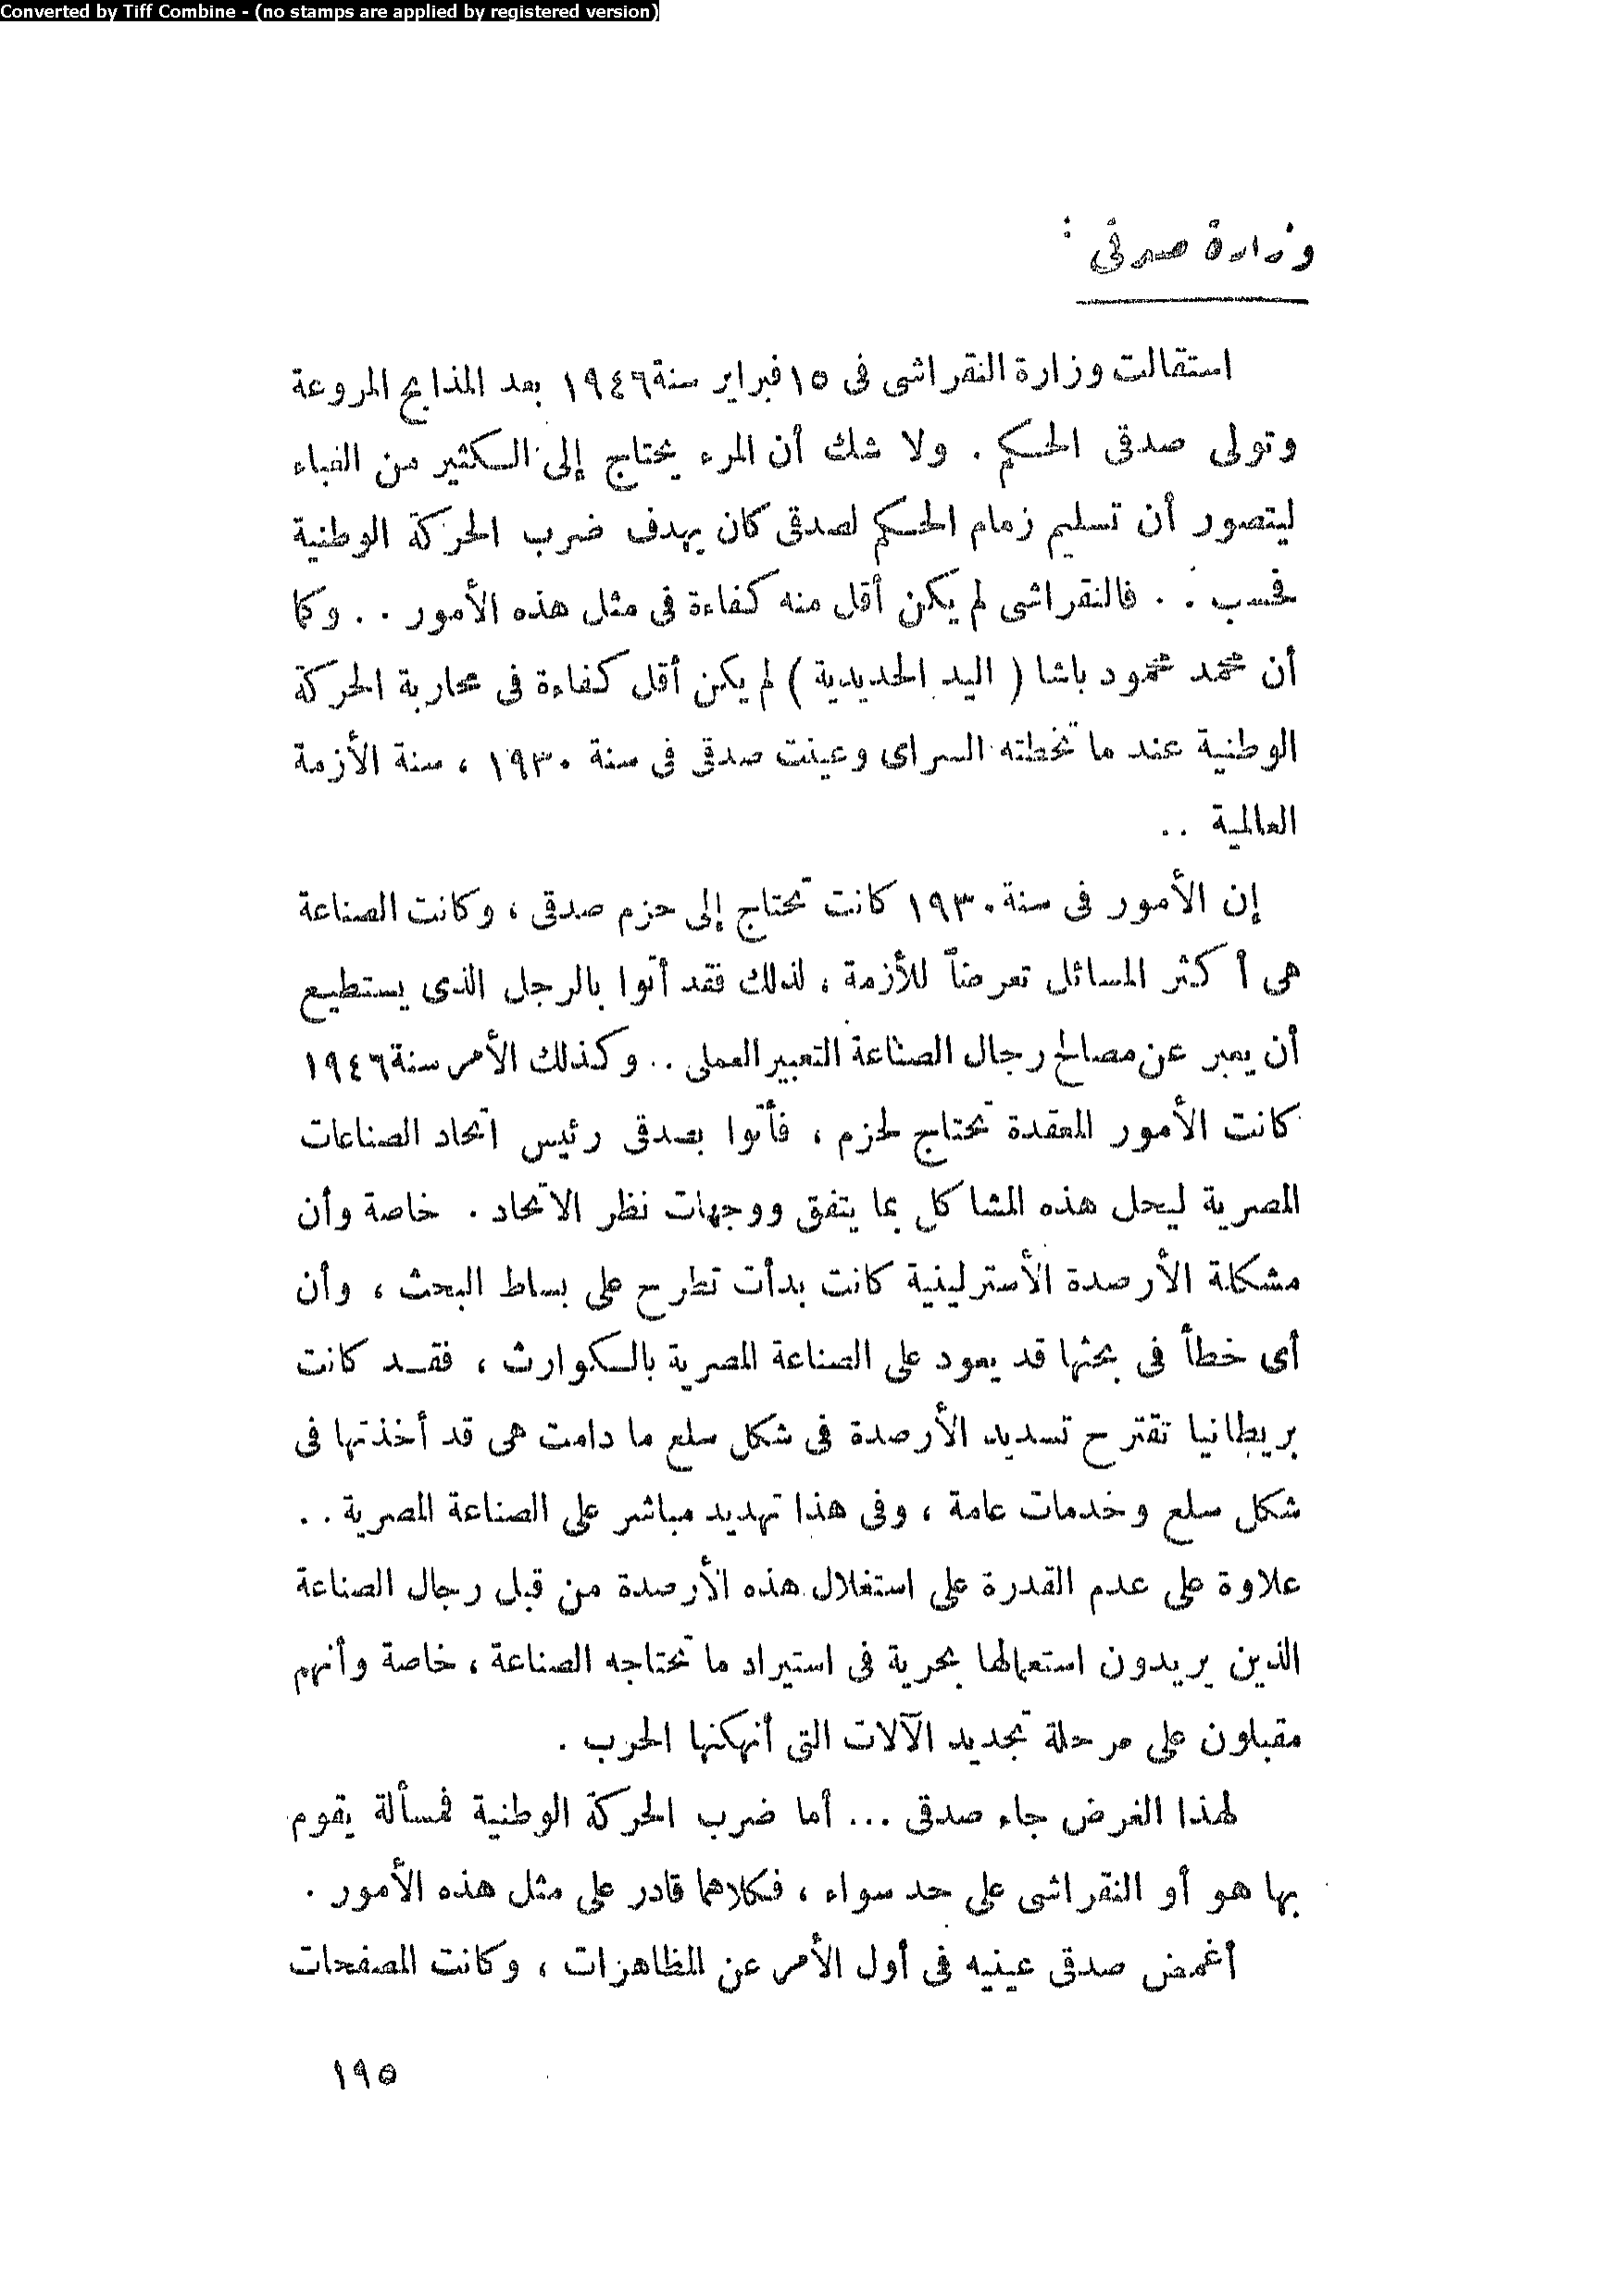 Converted by Tiff Combine - (no stamps are applied by registered version)
وزارة صدقى :
استقالت وزارة النقراشى فى ١٥ فبراير سنة ١٩٤٦ بعد المذابح المروعة
وتولى صدقى الحكم . ولا شك أن المرء يحتاج إلى الكثير من الغباء
ليتصور أن تسليم زمام الحكم لصدقى كان يهدف ضرب الحركة الوطنية
فحسب . . فالنقراشى لم يكن أقل منه كفاءة فى مثل هذه الأمور . . وكما
أن محمد محمود باشا ( اليد الحديدية ) لم يكن أقل كفاءة فى محاربة الحركة
الوطنية عند ما تخطته السراى وعينت صدقى فى سنة ١٩٣٠ ، سنة الأزمة
العالمية . .
إن الأمور فى سنة ١٩٣٠ كانت تحتاج إلى حزم صدقى ، وكانت الصناعة
هى أكثر المسائل تعرضاً للأزمة ، لذلك فقد أتوا بالرجل الذى يستطيع
أن يعبر عن مصالح رجال الصناعة التعبير العملى . . وكذلك الأمر سنة ١٩٤٦
كانت الأمور المعقدة تحتاج لحزم ، فأتوا بصدقى رئيس اتحاد الصناعات
المصرية ليحل هذه المشاكل بما يتفق ووجهات نظر الاتحاد . خاصة وأن
مشكلة الأرصدة الأسترلينية كانت بدأت تطرح على بساط البحث ، وأن
أى خطأ فى بحثها قد يعود على الصناعة المصرية بالكوارث ، فقد كانت
بريطانيا تقترح تسديد الأرصدة فى شكل سلع ما دامت هى قد أخذتها فى
شكل سلع وخدمات عامة ، وفى هذا تهديد مباشر على الصناعة المصرية . .
علاوة على عدم القدرة على استغلال هذه الأرصدة من قبل رجال الصناعة
الذين يريدون استعمالها بحرية فى استيراد ما تحتاجه الصناعة ، خاصة وأنهم
مقبلون على مرحلة تجديد الآلات التى أنهكتها الحرب .
لهذا الغرض جاء صدقى ... أما ضرب الحركة الوطنية فمسألة يقوم
بها هو أو النقراشى على حد سواء ، فكلاهما قادر على مثل هذه الأمور .
أغمض صدقى عينيه فى أول الأمر عن المظاهرات ، وكانت الصفحات
١٩٥